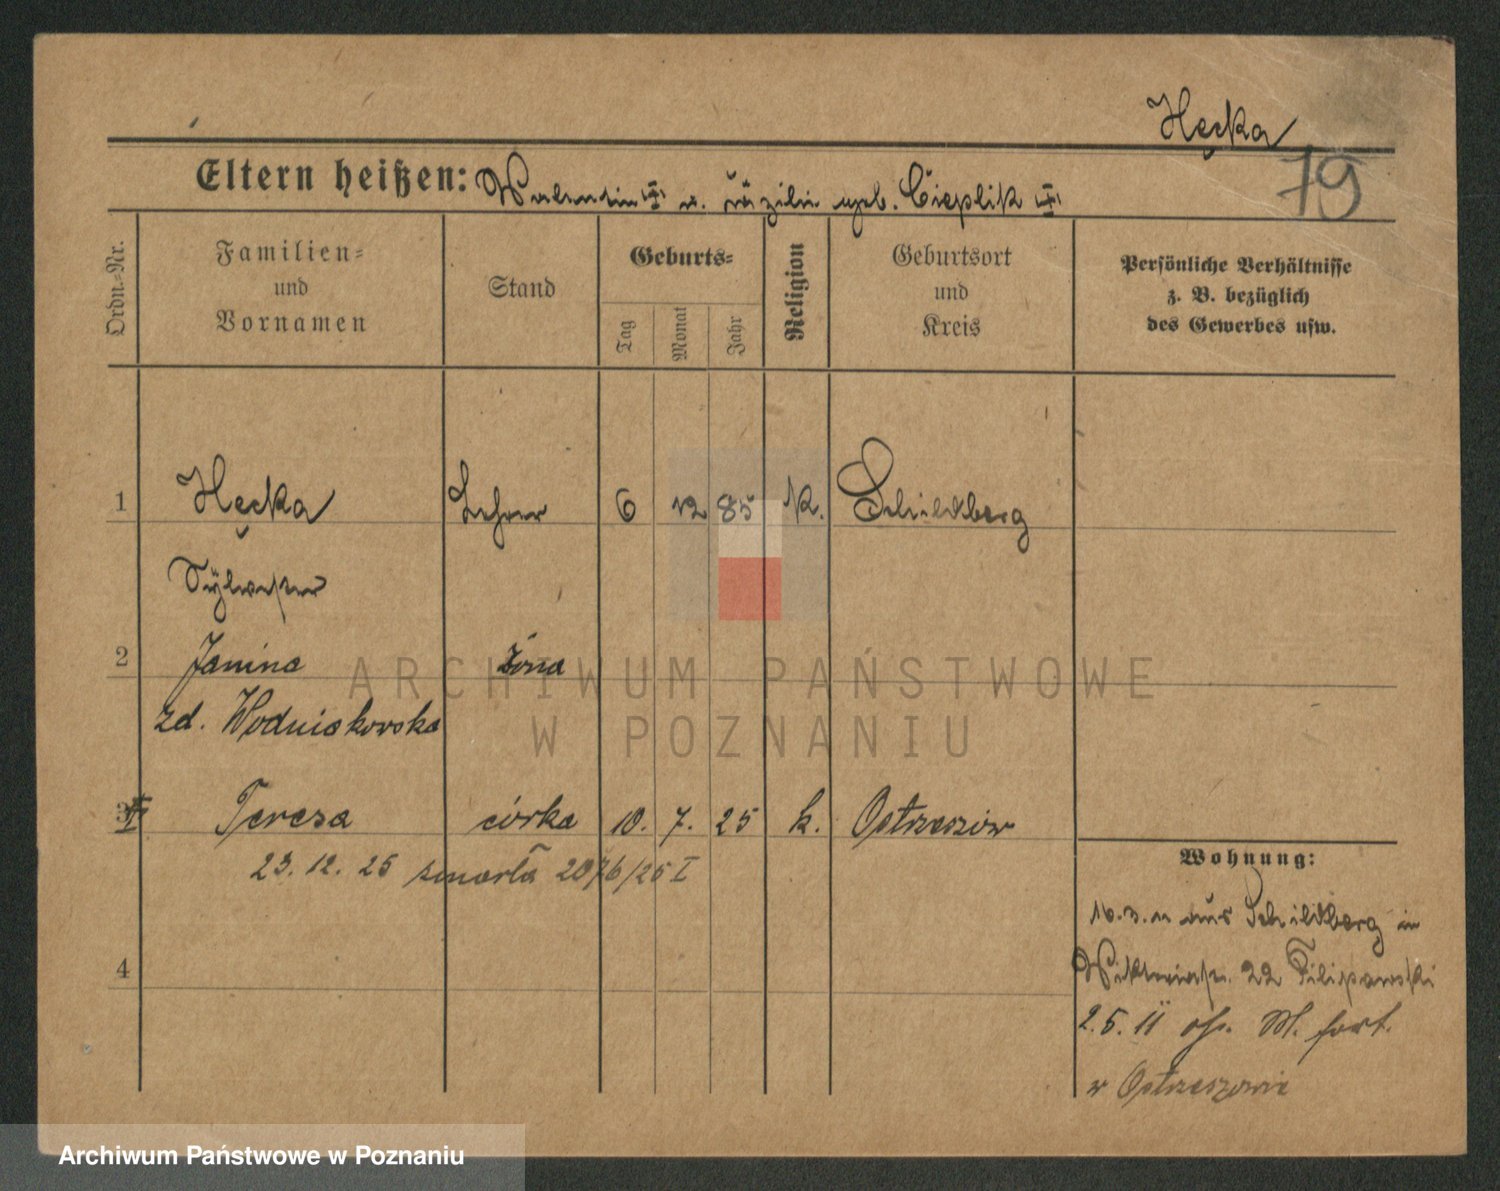 Hęcka
79
Eltern heißen: Valentin ✝ u. Cäzilie geb. Cieplik ✝
Ordn.-Nr.
Familien-
und
Vornamen
Stand
Geburts-
Tag
Monat
Jahr
Religion
Geburtsort
und
Kreis
Persönliche Verhältnisse
z. B. bezüglich
des Gewerbes usw.
1 Hęcka Lehrer 6 12 85 K. Schildberg
Sylvester
2 Janina żona
zd. Wodniakowska
3 Teresa córka 10. 7. 25 k. Ostrzeszów
23. 12. 25 zmarła 2076/25 I
4
Wohnung:
16.3.11 aus Schildberg in
Viktoriastr. 22 Filipowski
2.5.11 oh. M. fort.
w Ostrzeszowie
ARCHIWUM PAŃSTWOWE
W POZNANIU
Archiwum Państwowe w Poznaniu